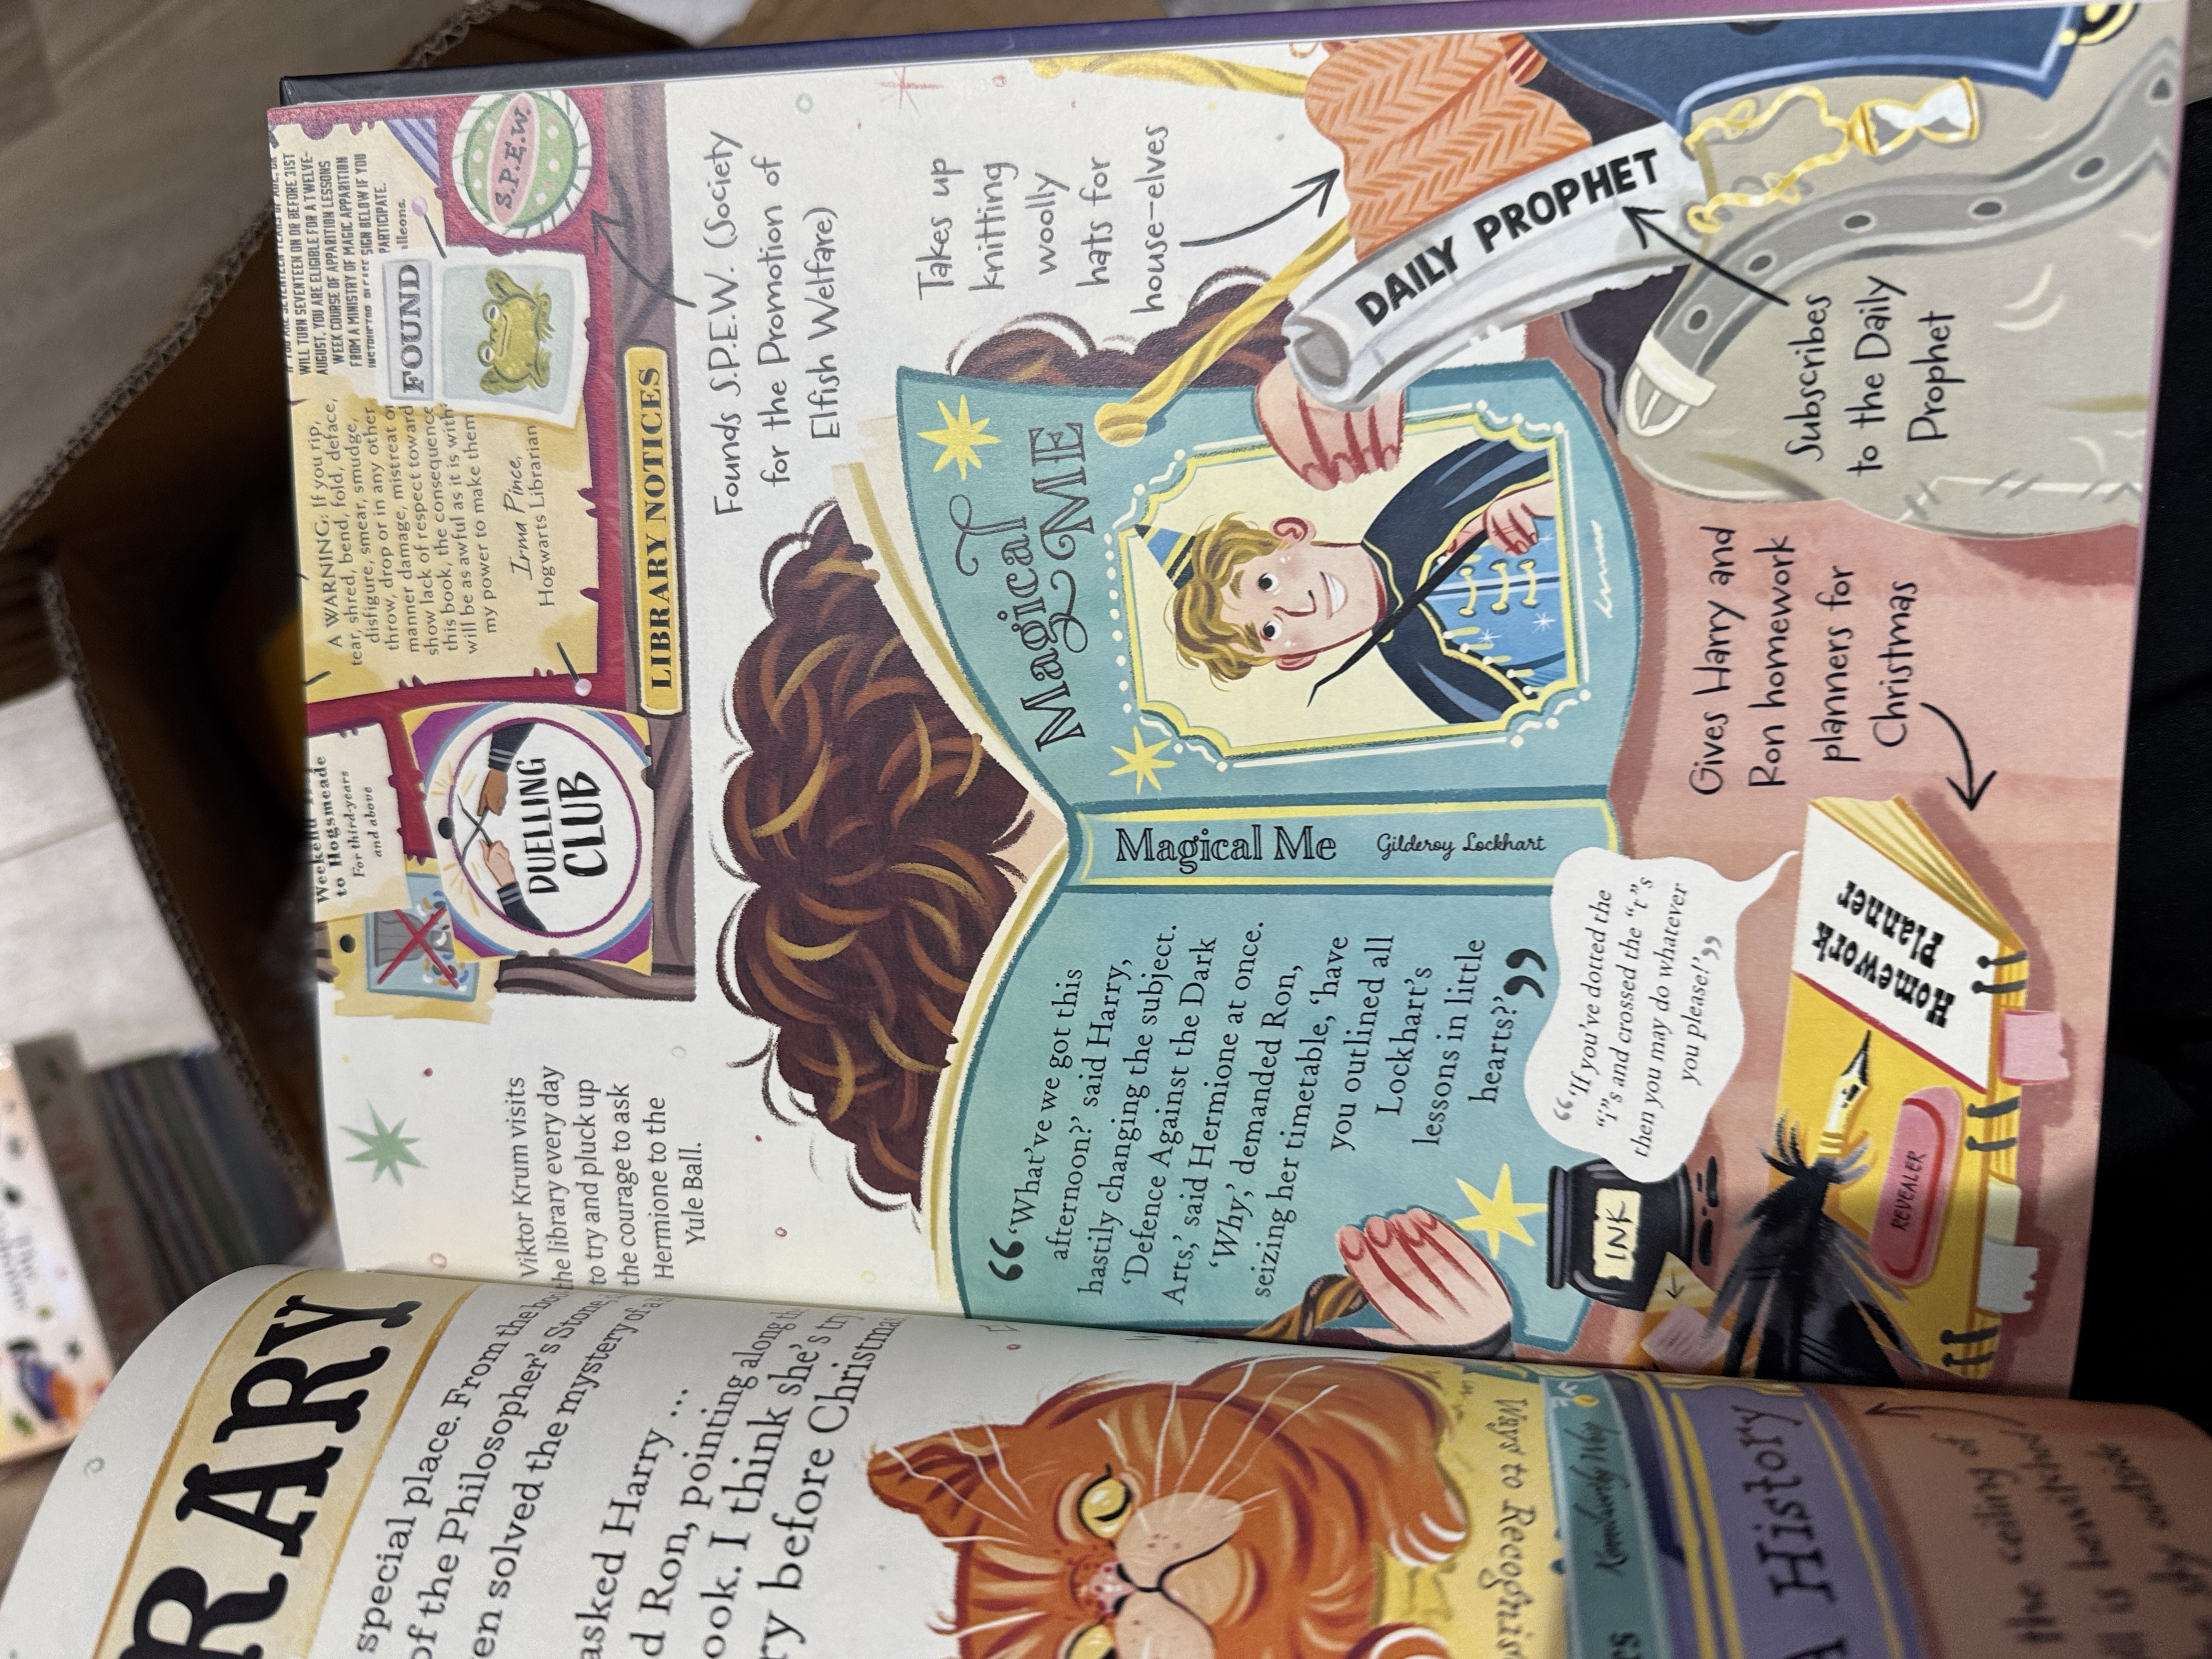 RARY
special place. From the
of the Philosopher's Stone
en solved the mystery of
asked Harry ...
d Ron, pointing along
ook. I think she's
ry before Christmas
Ways to Recognise
History
the ceiling of
is bewitched
sky outside
Viktor Krum visits
the library every day
to try and pluck up
the courage to ask
Hermione to the
Yule Ball.
Weekend
to Hogsmeade
For third-years
and above
DUELLING
CLUB
A WARNING: If you rip,
tear, shred, bend, fold, deface,
disfigure, smear, smudge,
throw, drop or in any other
manner damage, mistreat or
show lack of respect toward
this book, the consequence
will be as awful as it is with
my power to make them
Irma Pince,
Hogwarts Librarian
WILL TURN SEVENTEEN ON OR BEFORE 31ST
AUGUST, YOU ARE ELIGIBLE FOR A TWELVE-
WEEK COURSE OF APPARITION LESSONS
FROM A MINISTRY OF MAGIC APPARITION
SIGN BELOW IF YOU
PARTICIPATE.
lleons.
FOUND
S.P.E.W.
LIBRARY NOTICES
Founds S.P.E.W. (Society
for the Promotion of
Elfish Welfare)
Takes up
knitting
woolly
hats for
house-elves
“‘What’ve we got this
afternoon?’ said Harry,
hastily changing the subject.
‘Defence Against the Dark
Arts,’ said Hermione at once.
‘Why,’ demanded Ron,
seizing her timetable, ‘have
you outlined all
Lockhart’s
lessons in little
hearts?’”
Magical Me
Gilderoy Lockhart
Magical
ME
DAILY PROPHET
Subscribes
to the Daily
Prophet
Gives Harry and
Ron homework
planners for
Christmas
“‘If you’ve dotted the
“i”s and crossed the “t”s
then you may do whatever
you please!’”
INK
Homework
Planner
REVEALER